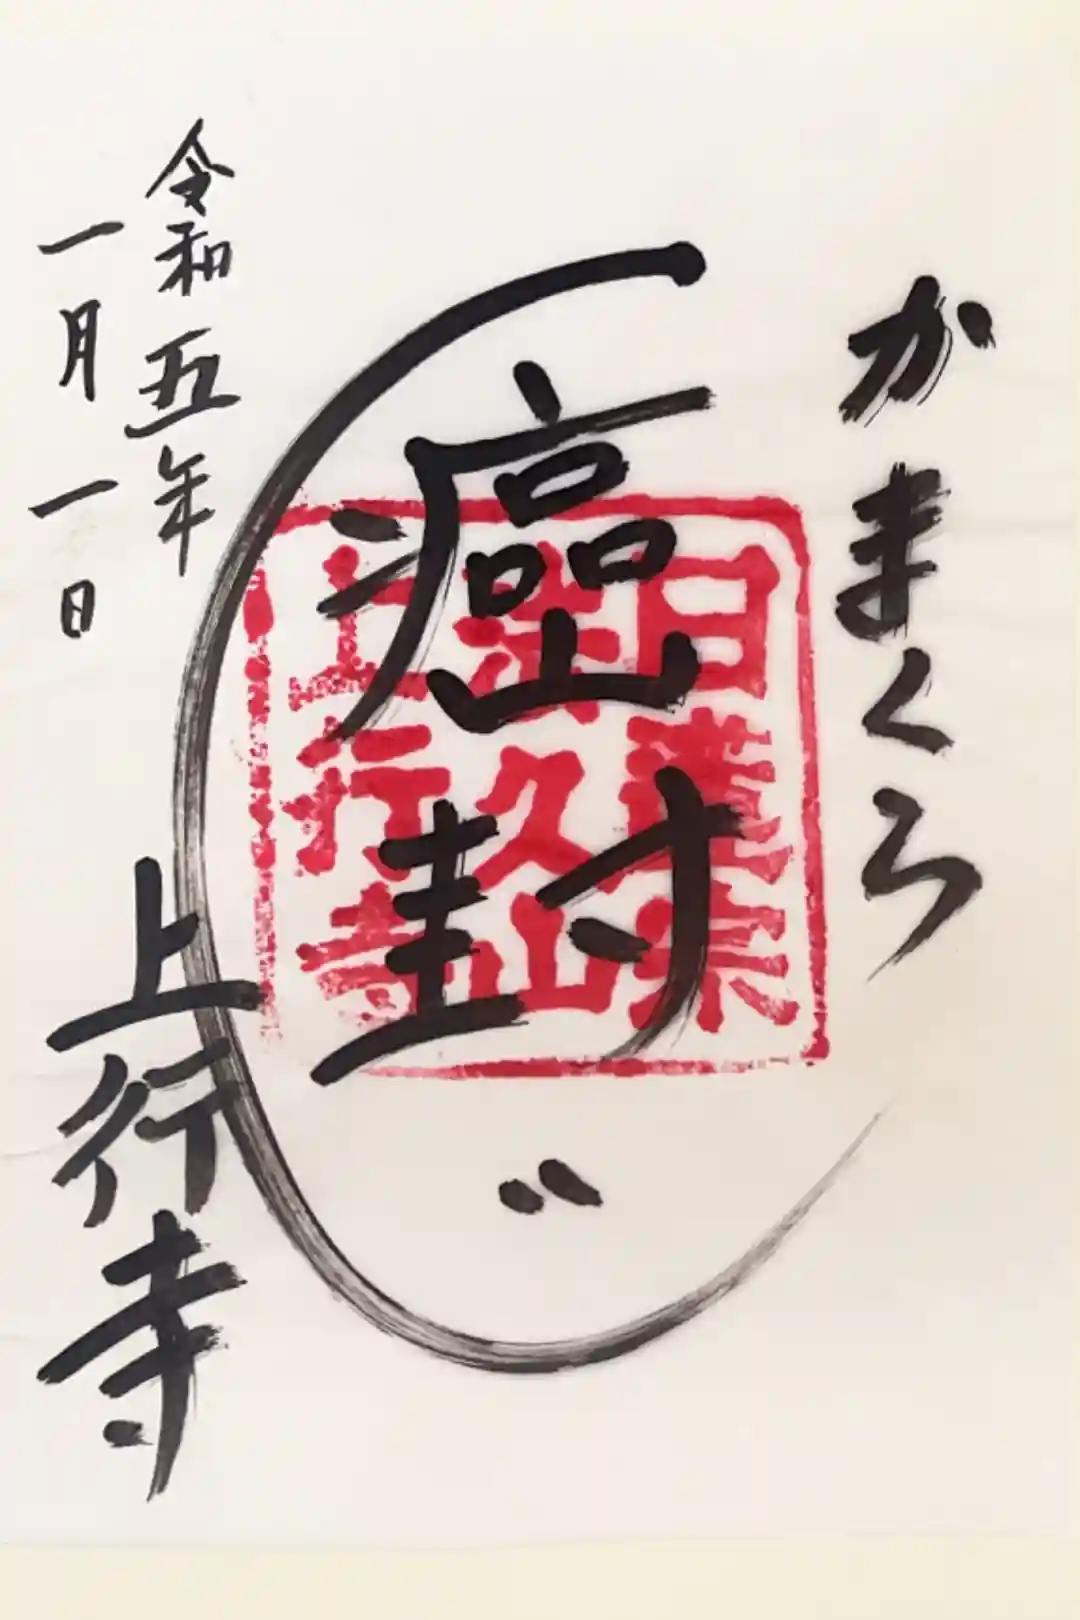 かまくら
癌封じ
日蓮宗
法久山
上行寺
令和五年
一月一日
上行寺